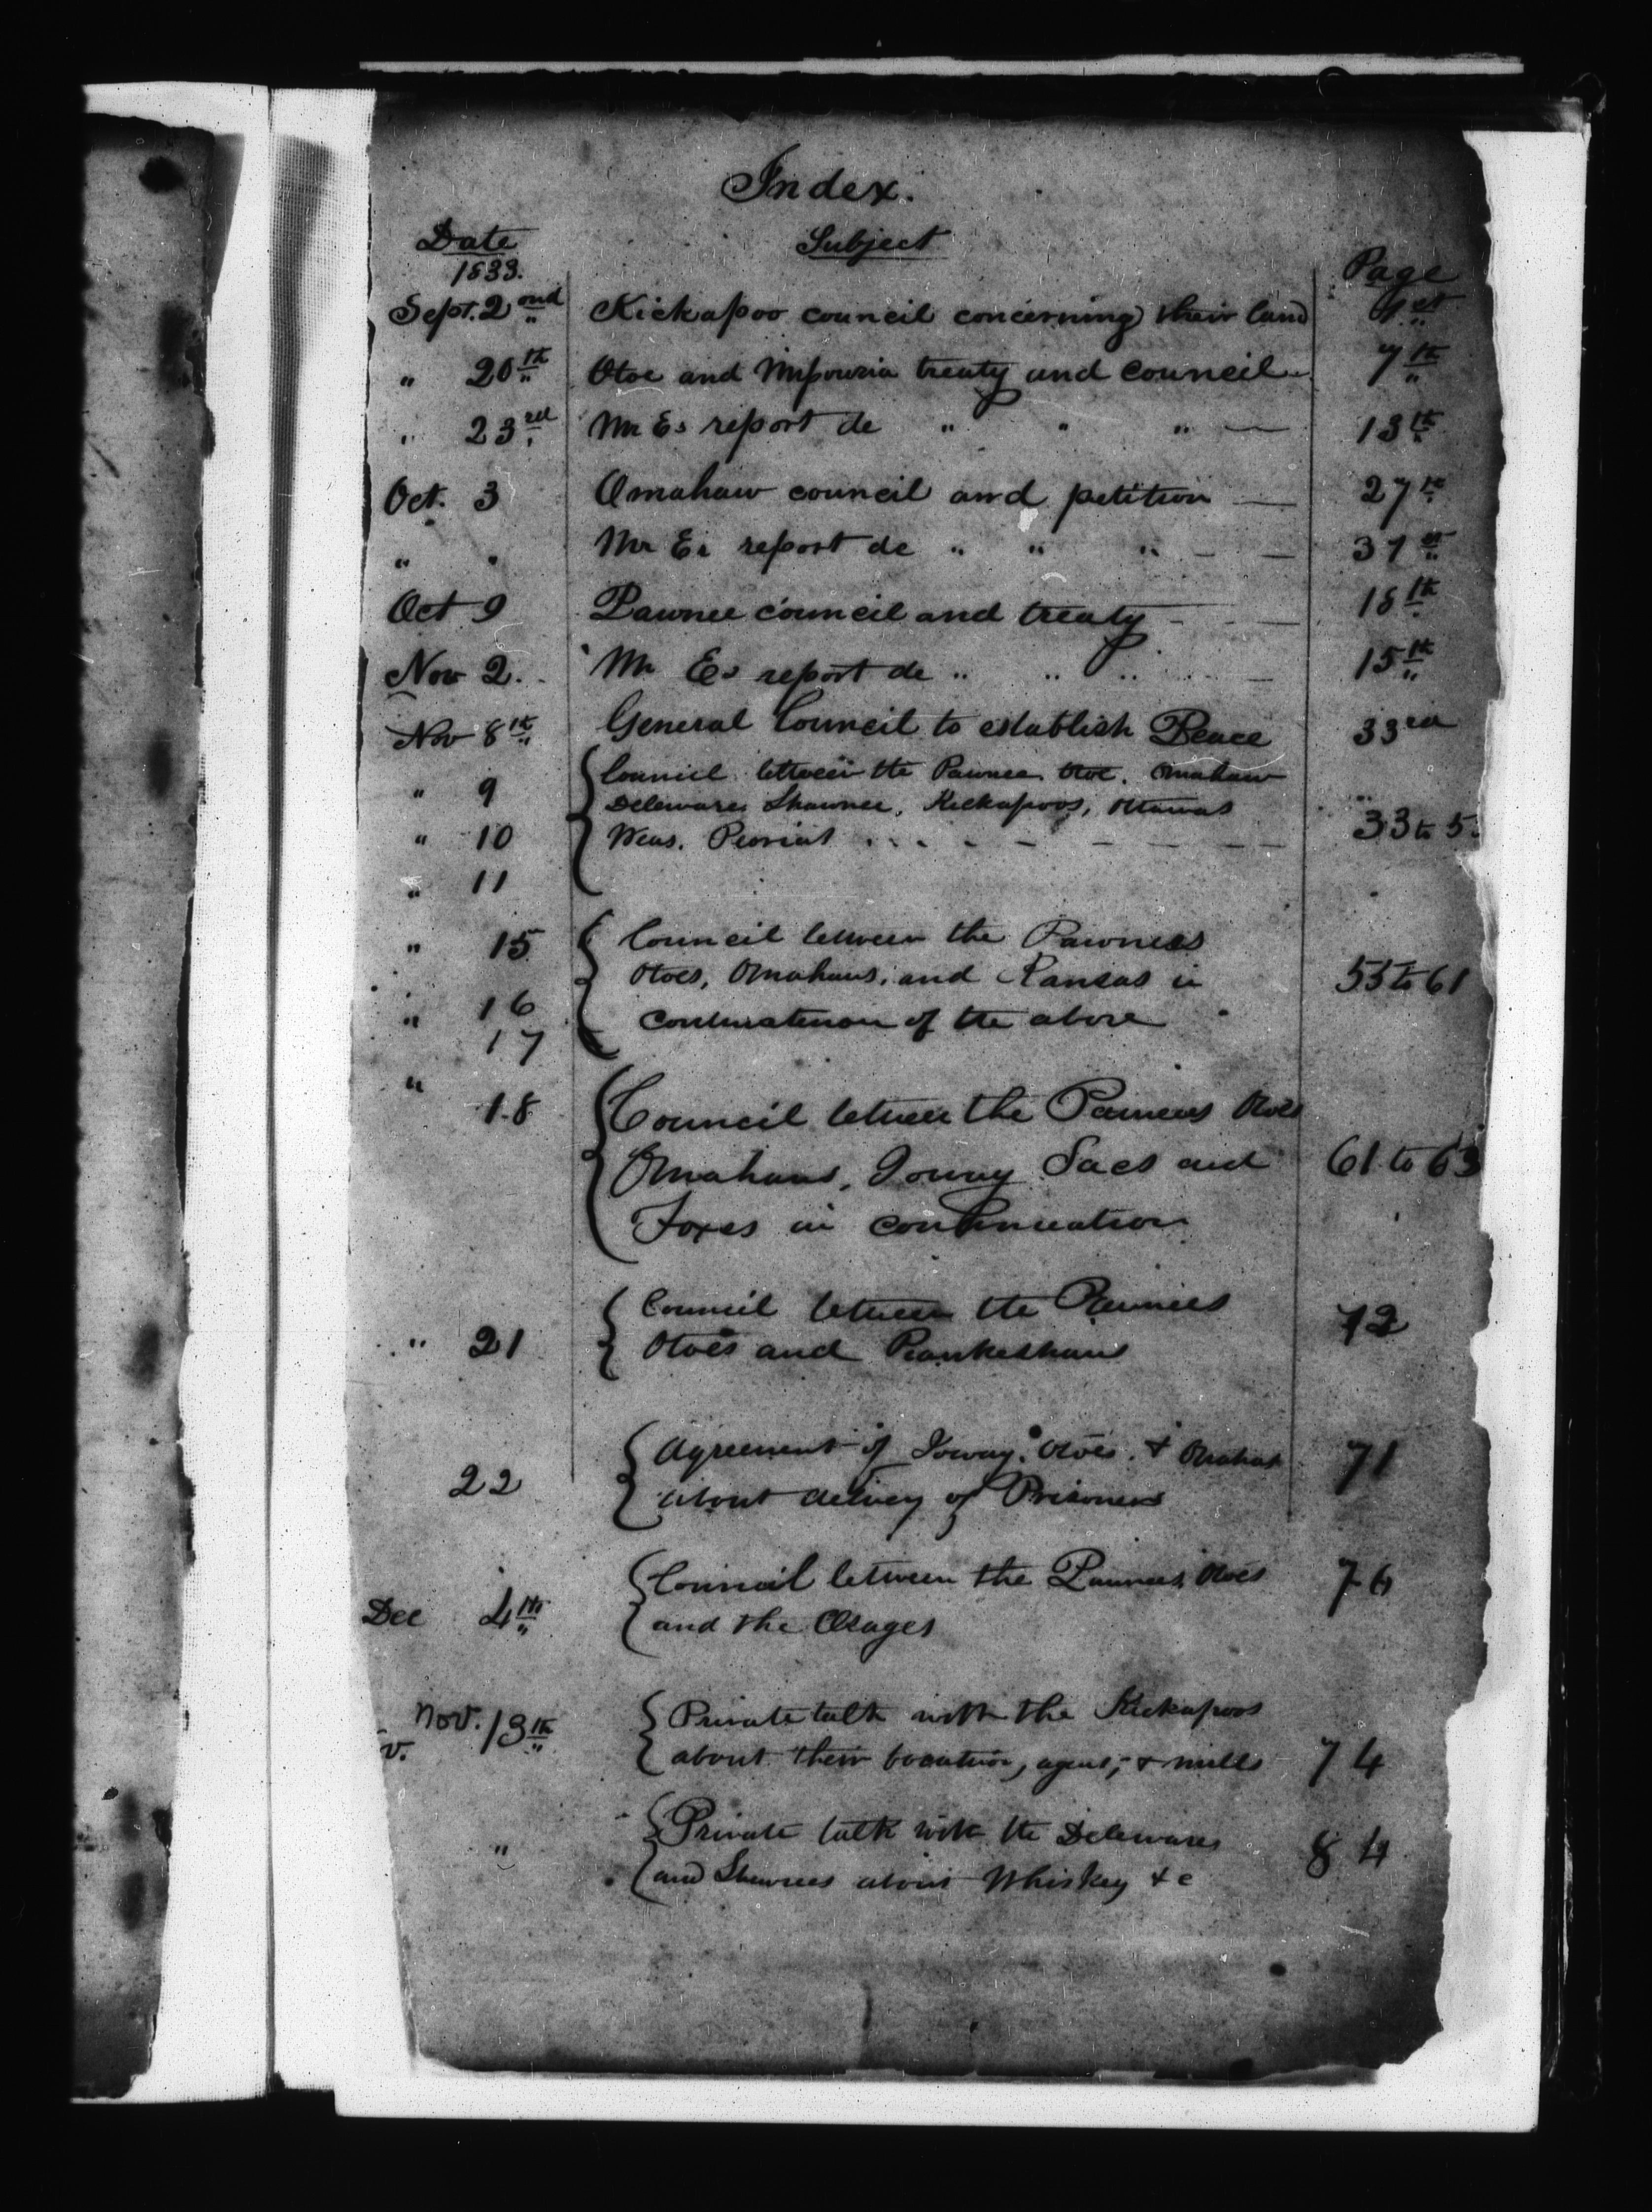 Index.
Date Subject Page
1833.
Sept. 2ond Kickapoo council concerning their land 1st
" 20th Otoe and Missouria treaty and council 7th
" 23rd Mr Es report de " " " — 13th
Oct. 3 Omahaw council and petition — 27th
" " Mr Es report de " " " — — 31st
Oct 9 Pawnee council and treaty - - — 18th
Nov 2. Mr Es report de " " " — 15th
Nov 8th General Council to establish Peace 33rd
" 9 Council between the Pawnee Otoe. Omahaw
Delewares Shawnee, Kickapoos, Ottawas
" 10 Weas. Peorias . . . - - - - - - 33 to 5
" 11
" 15 Council between the Pawnees
Otoes, Omahaws, and Kansas in 55 to 61
" 16 continuation of the above
17
"
18 Council between the Pawnees Otoes
Omahaws, Ioway Sacs and 61 to 63
Foxes in continuation
Council between the Pawnees 72
" 21 Otoes and Piankeshaws
Agreement of Ioway. Otoes. & Omahas 71
22 about delivery of Prisoners
Council between the Pawnees, Otoes 76
Dec 4th and the Osages
Nov. 13th Private talk with the Kickapoos
v. about their location, agent, & mills 74
Private talk with the Delewares
" and Shawnees about Whiskey &c 84